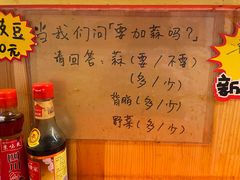 豉豆
0元
当我们问「要加蒜吗?」
请回答:蒜(要/不要)
(多/少)
背脂(多/少)
野菜(多/少)
新